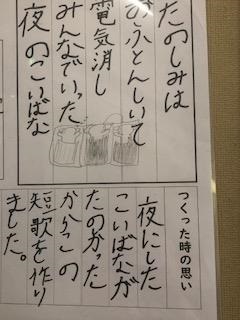 たのしみは
おふとんしいて
電気消し
みんなでいった
夜のこいばな
つくった時の思い
夜にした
こいばなが
たのかった
からこの
短歌を作り
ました。